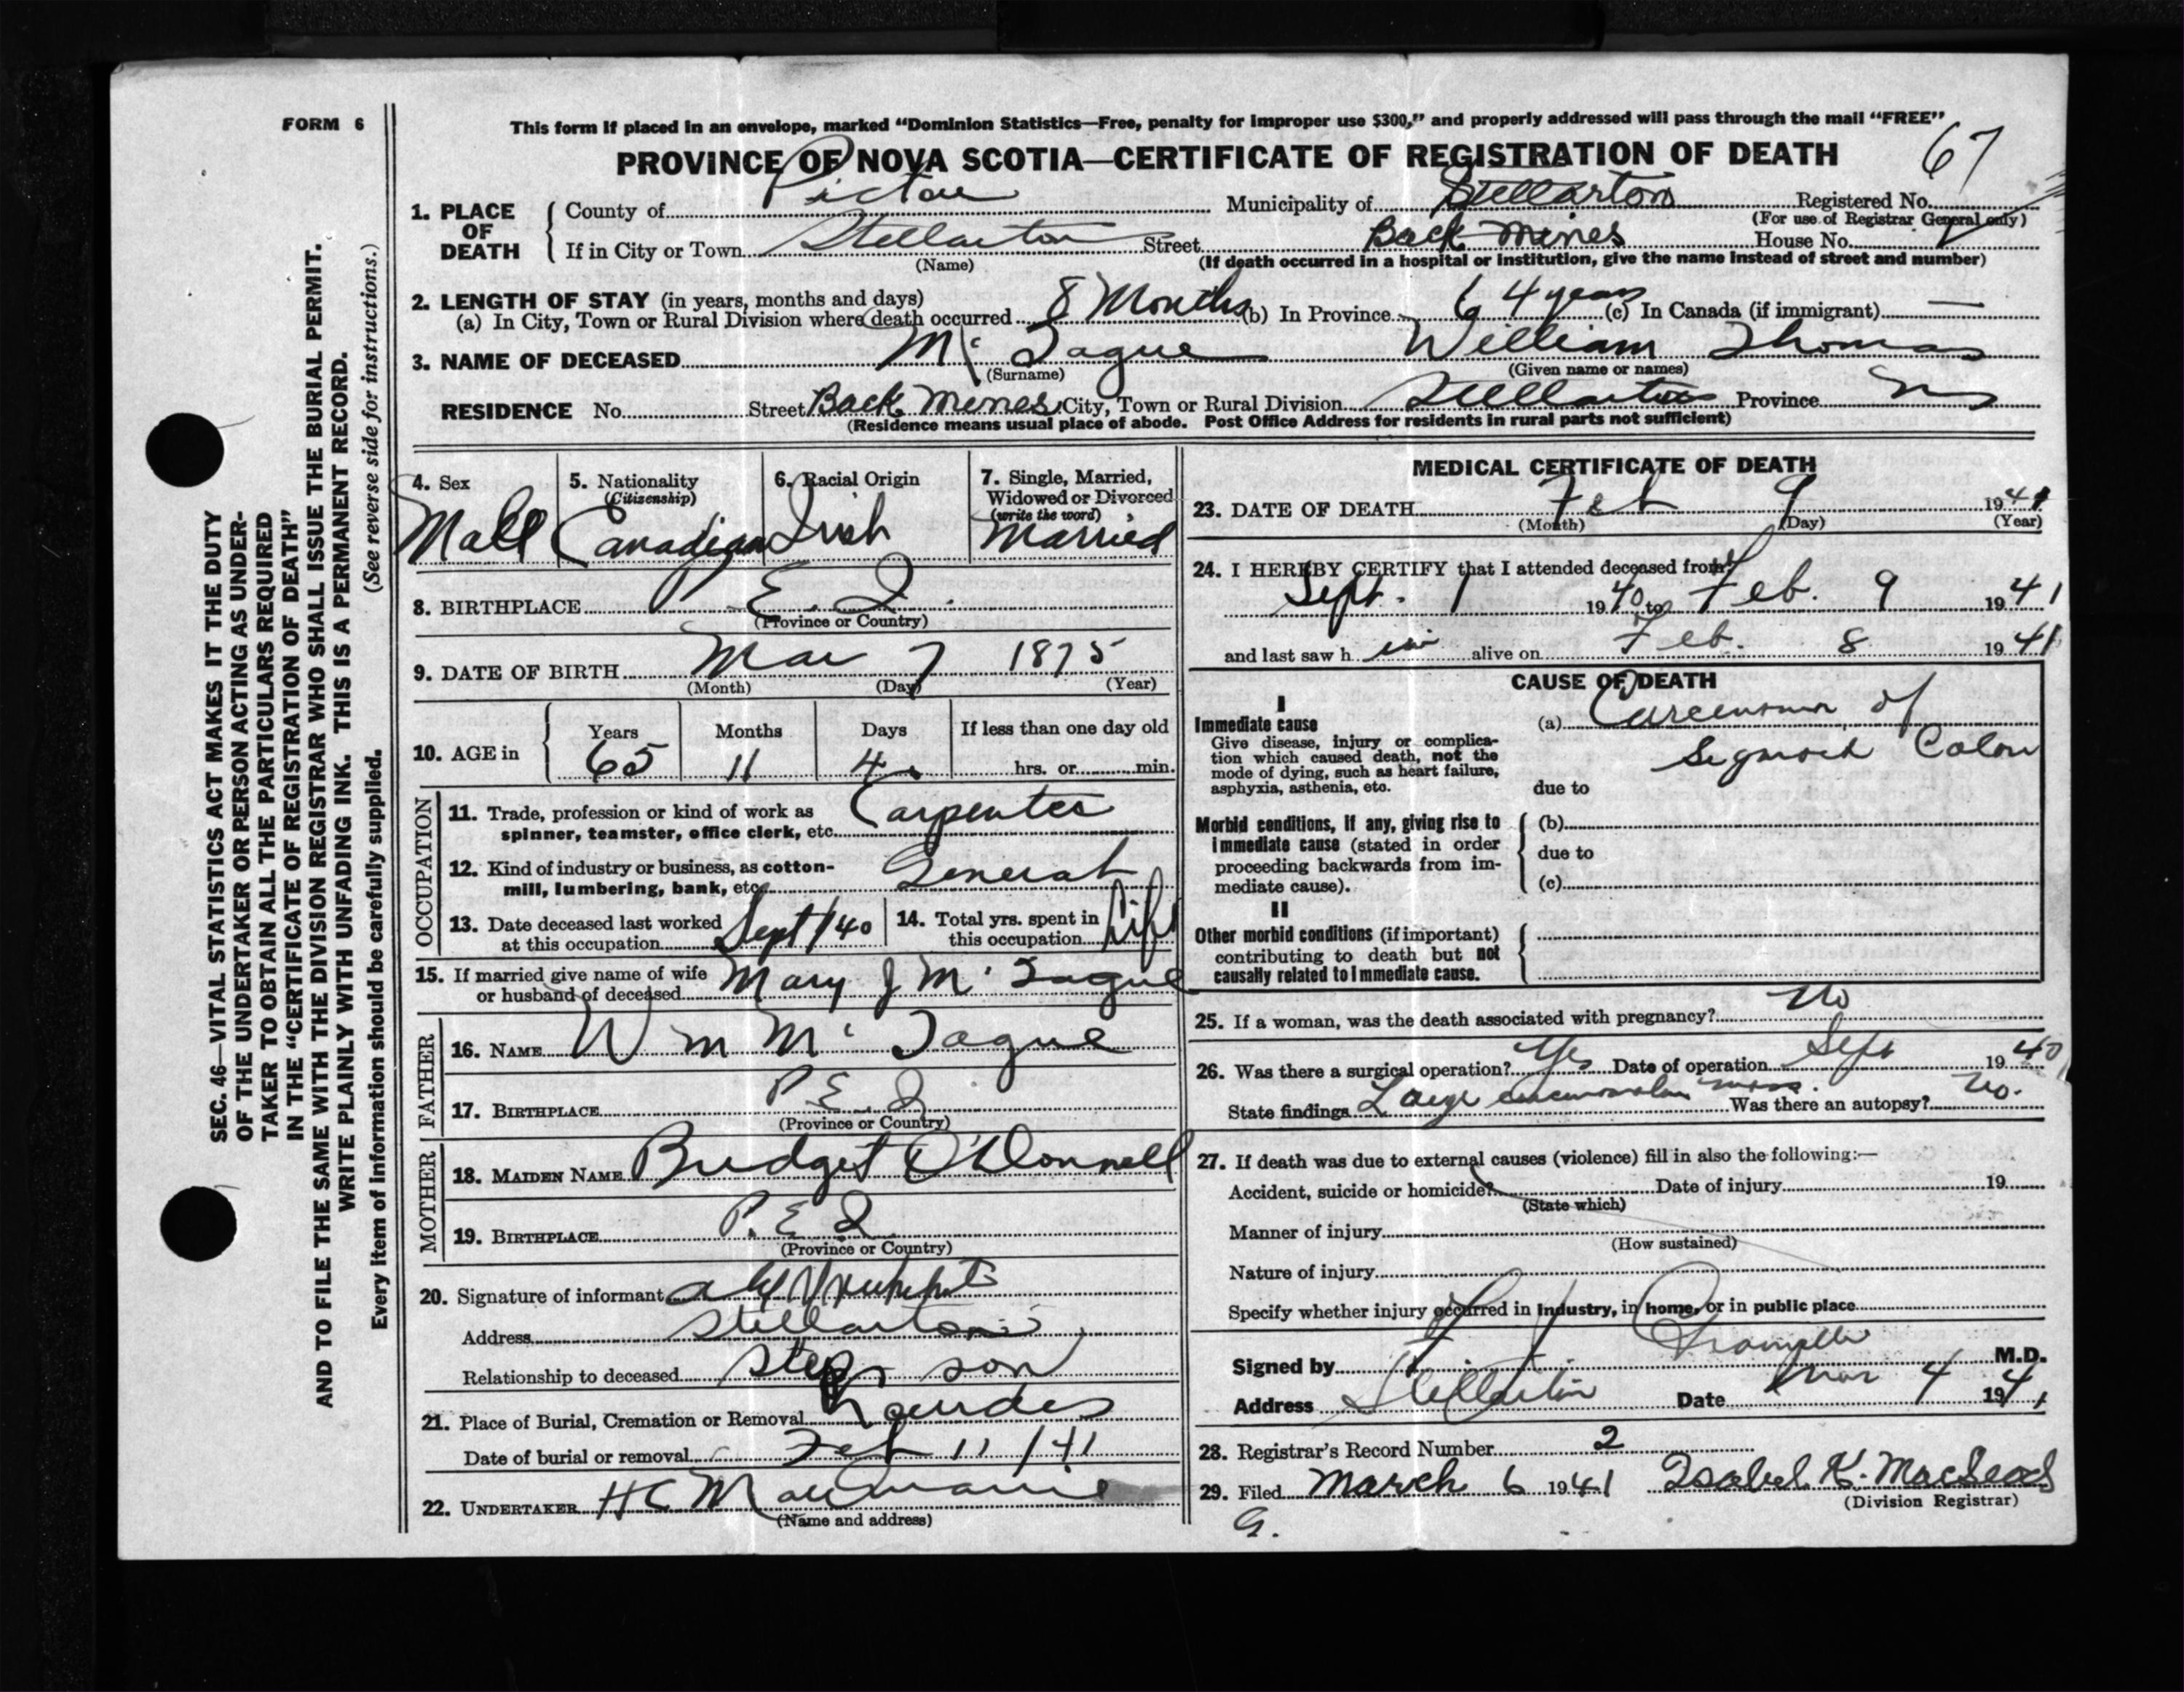 FORM 6
This form if placed in an envelope, marked “Dominion Statistics—Free, penalty for improper use $300,” and properly addressed will pass through the mail “FREE”
PROVINCE OF NOVA SCOTIA—CERTIFICATE OF REGISTRATION OF DEATH
67
1. PLACE OF DEATH
County of Pictou Municipality of Stellarton Registered No.
(For use of Registrar General only)
If in City or Town Stellarton Street Back Mines House No.
(Name) (If death occurred in a hospital or institution, give the name instead of street and number)
2. LENGTH OF STAY (in years, months and days)
(a) In City, Town or Rural Division where death occurred 8 Months (b) In Province 64 years (c) In Canada (if immigrant) —
3. NAME OF DECEASED Mc Tague William Thomas
(Surname) (Given name or names)
RESIDENCE No. Street Back Mines City, Town or Rural Division Stellarton Province NS
(Residence means usual place of abode. Post Office Address for residents in rural parts not sufficient)
SEC. 46—VITAL STATISTICS ACT MAKES IT THE DUTY
OF THE UNDERTAKER OR PERSON ACTING AS UNDER-
TAKER TO OBTAIN ALL THE PARTICULARS REQUIRED
IN THE “CERTIFICATE OF REGISTRATION OF DEATH”
AND TO FILE THE SAME WITH THE DIVISION REGISTRAR WHO SHALL ISSUE THE BURIAL PERMIT.
WRITE PLAINLY WITH UNFADING INK. THIS IS A PERMANENT RECORD.
Every item of information should be carefully supplied. (See reverse side for instructions.)
4. Sex
Male
5. Nationality
(Citizenship)
Canadian
6. Racial Origin
Irish
7. Single, Married,
Widowed or Divorced
(write the word)
Married
8. BIRTHPLACE P. E. I.
(Province or Country)
9. DATE OF BIRTH Mar 7 1875
(Month) (Day) (Year)
10. AGE in
Years Months Days If less than one day old
65 11 4 hrs. or min.
OCCUPATION
11. Trade, profession or kind of work as
spinner, teamster, office clerk, etc. Carpenter
12. Kind of industry or business, as cotton-
mill, lumbering, bank, etc. General
13. Date deceased last worked
at this occupation Sept 1/40
14. Total yrs. spent in
this occupation Life
15. If married give name of wife
or husband of deceased Mary J Mc Tague
FATHER
16. NAME Wm Mc Tague
17. BIRTHPLACE P. E. I
(Province or Country)
MOTHER
18. MAIDEN NAME Bridget O'Donnell
19. BIRTHPLACE P. E. I
(Province or Country)
20. Signature of informant
Address Stellarton
Relationship to deceased step son
21. Place of Burial, Cremation or Removal Lourdes
Date of burial or removal Feb 11/41
22. UNDERTAKER H C
(Name and address)
MEDICAL CERTIFICATE OF DEATH
23. DATE OF DEATH Feb 9 1941
(Month) (Day) (Year)
24. I HEREBY CERTIFY that I attended deceased from
Sept. 1 1940 to Feb. 9 1941
and last saw him alive on Feb. 8 1941
CAUSE OF DEATH
I
Immediate cause
Give disease, injury or complica-
tion which caused death, not the
mode of dying, such as heart failure,
asphyxia, asthenia, etc.
(a) Carcinoma of
Sigmoid Colon
due to
Morbid conditions, if any, giving rise to
immediate cause (stated in order
proceeding backwards from im-
mediate cause).
(b)
due to
(c)
II
Other morbid conditions (if important)
contributing to death but not
causally related to immediate cause.
25. If a woman, was the death associated with pregnancy? No
26. Was there a surgical operation? Yes Date of operation Sept 1940
State findings Large mass. Was there an autopsy? No.
27. If death was due to external causes (violence) fill in also the following:—
Accident, suicide or homicide? Date of injury 19
(State which)
Manner of injury
(How sustained)
Nature of injury
Specify whether injury occurred in industry, in home, or in public place
Signed by M.D.
Address Stellarton Date Mar 4 1941
28. Registrar's Record Number 2
29. Filed March 6 1941 Isabel K. MacLeod
(Division Registrar)
G.